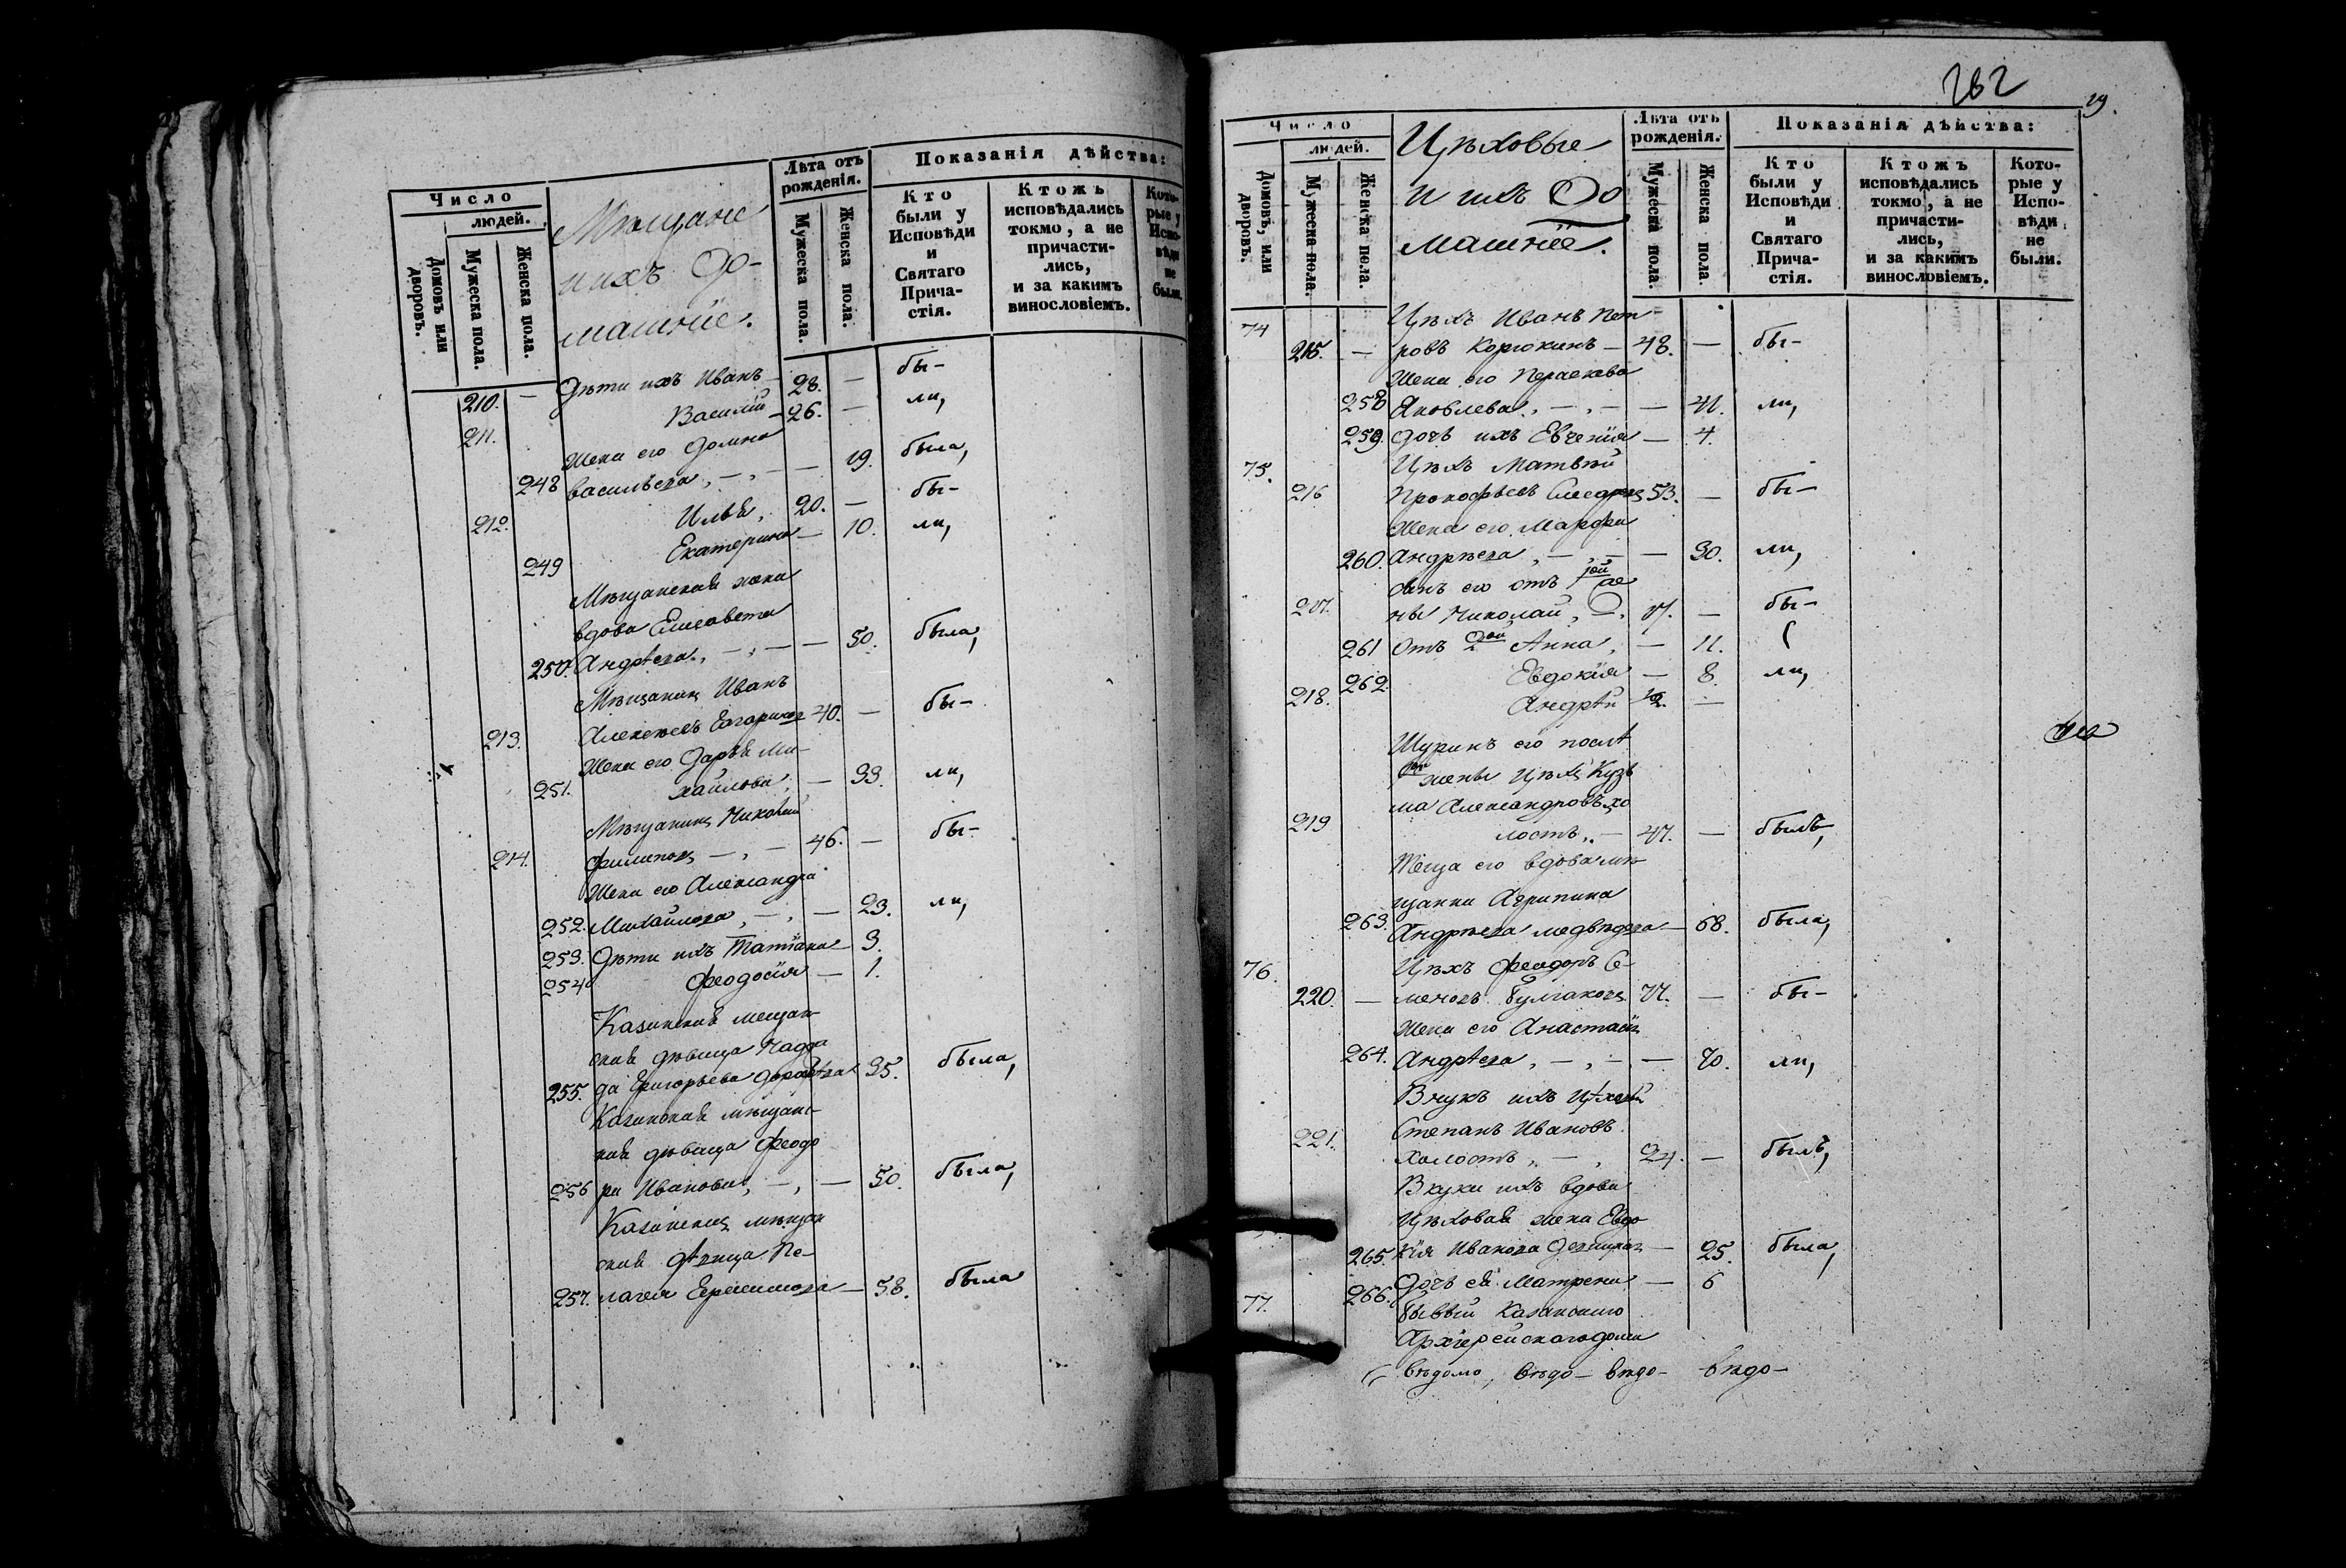 Число
людей.
Домовъ или дворовъ.
Мужеска пола.
Женска пола.
Мѣщане
и ихъ До-
машніе.
Лѣта отъ рожденія.
Мужеска пола.
Женска пола.
Показанія дѣйства:
Кто были у Исповѣди и Святаго Прича-стія.
Ктожъ исповѣдались токмо, а не причасти-лись, и за какимъ винословіемъ.
Кото-рые у Испо-вѣди не были.
210. — Дѣти ихъ Иванъ — 28. — бы-
211. Василій — 26. — ли,
Жена его Домна
248 Васильева, —, — — 19. была,
212. Илья, 20. — бы-
249 Екатерина — 10. ли,
Мѣщанская жена
вдова Елисавета
250. Андрѣева, —, — — 50. была,
Мѣщанинъ Иванъ
213. Алексѣевъ 40. — бы-
Жена его Дарья Ми-
251. хайлова, — 33. ли,
Мѣщанинъ Николай
214. Филиповъ —, — 46. — бы-
Жена его Александра
252. Михайлова, —, — 23. ли,
253. Дѣти ихъ Татіана — 3.
254 Феодосія — 1.
Казанская мещан-
ская дѣвица Надеж
255. да Григорьева 35. была,
Казанская мѣщанс-
кая дѣвица Феодо
256 ра Иванова, —, — 50. была,
Казанская мѣщан
ская дѣвица Пе-
257. лагея Герасимова — 58. была
262
19.
Число
людей.
Домовъ, или дворовъ.
Мужеска пола.
Женска пола.
Цѣховые
и ихъ До
машніе.
Лѣта отъ рожденія.
Мужеска пола.
Женска пола.
Показанія дѣйства:
Кто были у Исповѣди и Святаго Прича-стія.
Ктожъ исповѣдались токмо, а не причасти-лись, и за какимъ винословіемъ.
Кото-рые у Испо-вѣди не были.
74 Цѣхъ Иванъ Пет
215. — ровъ Корюкинъ — 48. — бы-
Жена его Параскева
258 Яковлева, —, — — 41. ли,
259. Дочь ихъ Евгенія — 4.
75. Цѣхъ Матвѣй
216 Прокофьевъ 53. — бы-
Жена его Марфа
260. Андрѣева, —, — — 30. ли,
Сынъ его отъ 1ой же
217. ны Николай, —. 17. — бы-
261 Отъ 2ой Анна, — 11.
262. Евдокія — 8. ли,
218. Андрѣй —
Шуринъ его послѣ
1й жены Цѣхъ Кузь
ма Александровъ, хо
219 лостъ, — 47. — былъ,
Теща его вдова мѣ
щанка Агрипина
263. Андрѣева Медвѣдева — 68. была,
76. Цѣхъ Феодоръ Се
220. — меновъ Булгаковъ 77. — бы-
Жена его Анастасія
264. Андрѣева, —, — — 70. ли,
Внукъ ихъ Цѣховый
221. Степанъ Ивановъ
холостъ, —, 24. — былъ,
Внука ихъ вдова
Цѣховая жена Евдо
265. кія Иванова — 25. была,
266. Дочь ея Матрена — 6
77. Бывый Казанскаго
Архіерейскаго дома
вѣдомо, вѣдо- вѣдо- вѣдо-